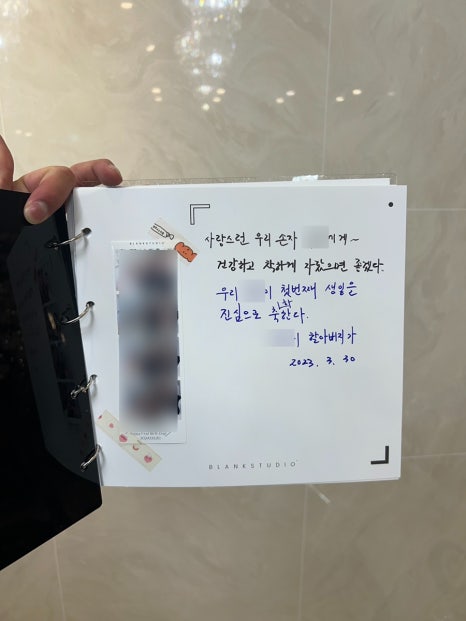 BLANKSTUDIO
사랑스런 우리 손자 에게~
건강하고 착하게 자랐으면 좋겠다.
우리 이 첫번째 생일을
진심으로 축하한다.
할아버지가
2023. 3. 30
BLANKSTUDIO